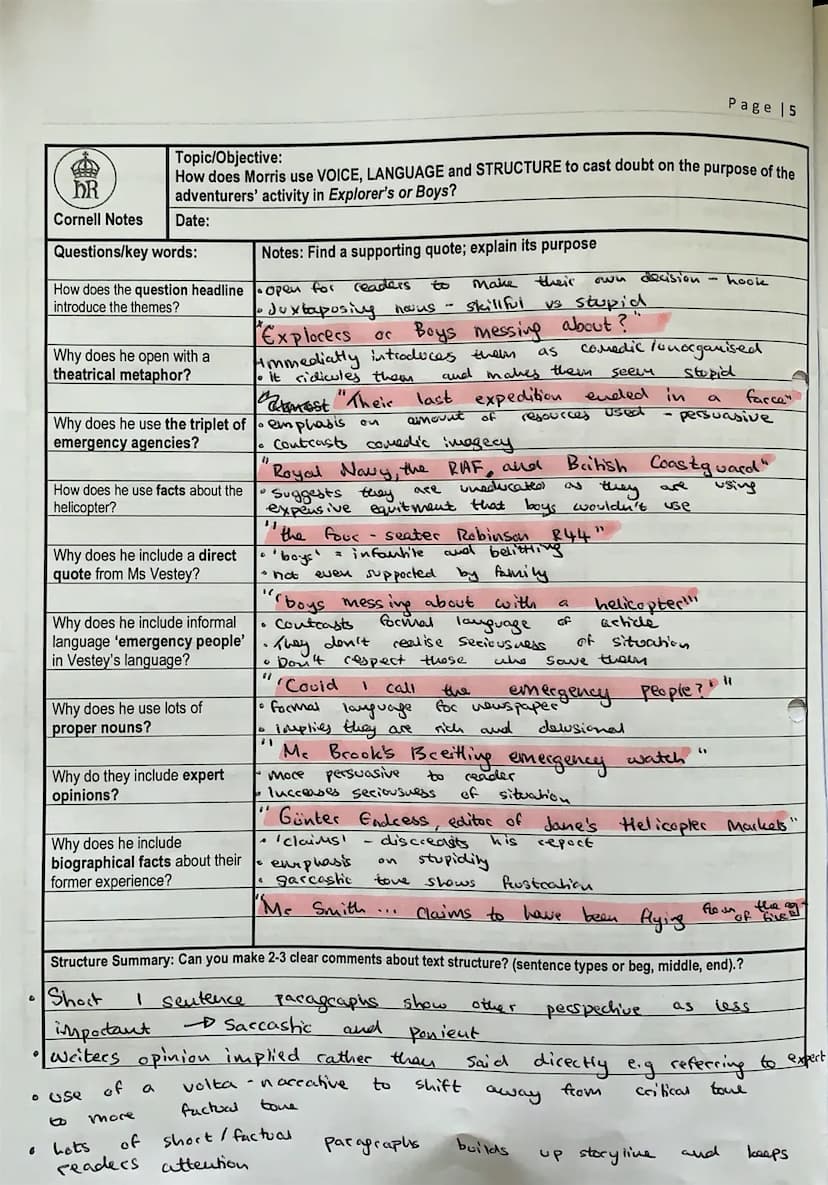 Page | 5
Topic/Objective:
How does Morris use VOICE, LANGUAGE and STRUCTURE to cast doubt on the purpose of the
adventurers' activity in Explorer's or Boys?
hR
Cornell Notes
Date:
Questions/key words:
Notes: Find a supporting quote; explain its purpose
How does the question headline
introduce the themes?
• open for readers to make their own decision - hook
• Juxtaposing nouns - skillful vs stupid
"Explorers or Boys messing about?"
Why does he open with a
theatrical metaphor?
Immediatly introduces them as comedic/unorganised
• it ridicules them and makes them seem stupid
"Their last expedition ended in a farce"
Why does he use the triplet of
emergency agencies?
• emphasis on amount of resources used - persuasive
• contrasts comedic imagery
"Royal Navy, the RAF, and British Coastguard"
How does he use facts about the
helicopter?
• suggests they are uneducated as they are using
expensive equitment that boys wouldn't use
"the four-seater Robinson R44"
Why does he include a direct
quote from Ms Vestey?
• 'boys' = infantile and belittling
• not even supported by family
"'boys messing about with a helicopter'"
Why does he include informal
language 'emergency people'
in Vestey's language?
• contrasts formal language of article
• They don't realise seriousness of situation
• Don't respect those who save them
"'Could I call the emergency people?'"
Why does he use lots of
proper nouns?
• formal language for newspaper
• implies they are rich and delusional
"Mr Brook's Breitling emergency watch"
Why do they include expert
opinions?
• more persuasive to reader
• Increases seriousness of situation
"Günter Endress, editor of Jane's Helicopter Markets"
Why does he include
biographical facts about their
former experience?
• 'claims' - discredits his report
• emphasis on stupidity
• sarcastic tone shows frustration
"Mr Smith... claims to have been flying from the age of five"
Structure Summary: Can you make 2-3 clear comments about text structure? (sentence types or beg, middle, end).?
• Short 1 sentence paragraphs show other perspective as less
important → Sarcastic and
• Writers opinion implied rather than said directly e.g referring to expert
• use of a volta - narrative to shift away from critical tone
to more factual tone
• Lots of short/factual paragraphs builds up storyline and keeps
readers attention